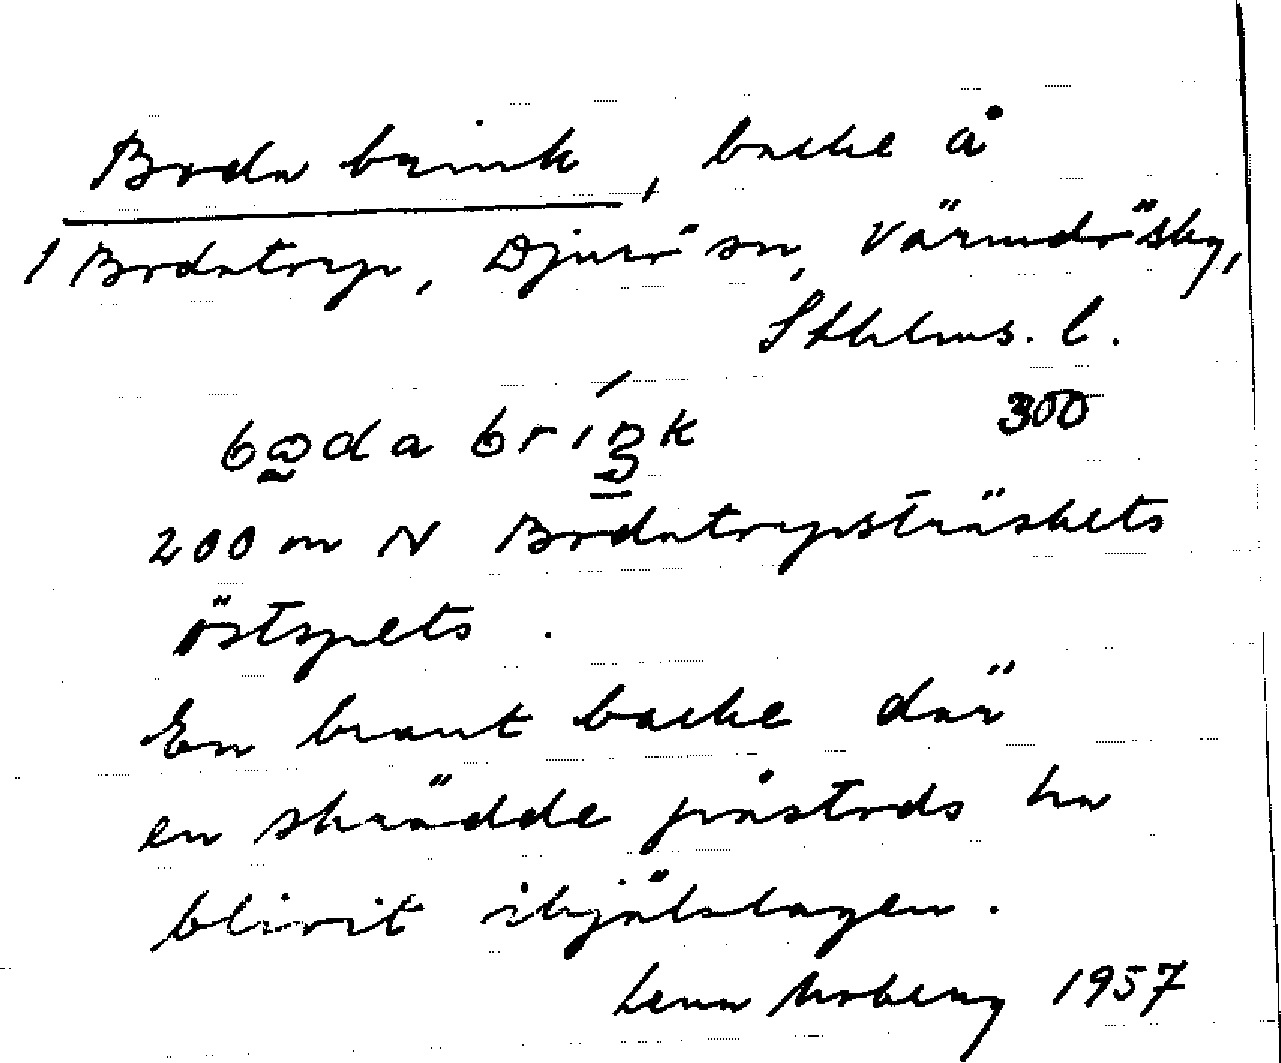 Boda brink, backe å
1 Bodatorp, Djurö sn, Värmdö sky,
Sthlms. l.
300
200 m N Bodatorpsträskets
östspets.
En brant backe där
en skrädde påstods ha
blivit ihjälslagen.
Lena Moberg 1957